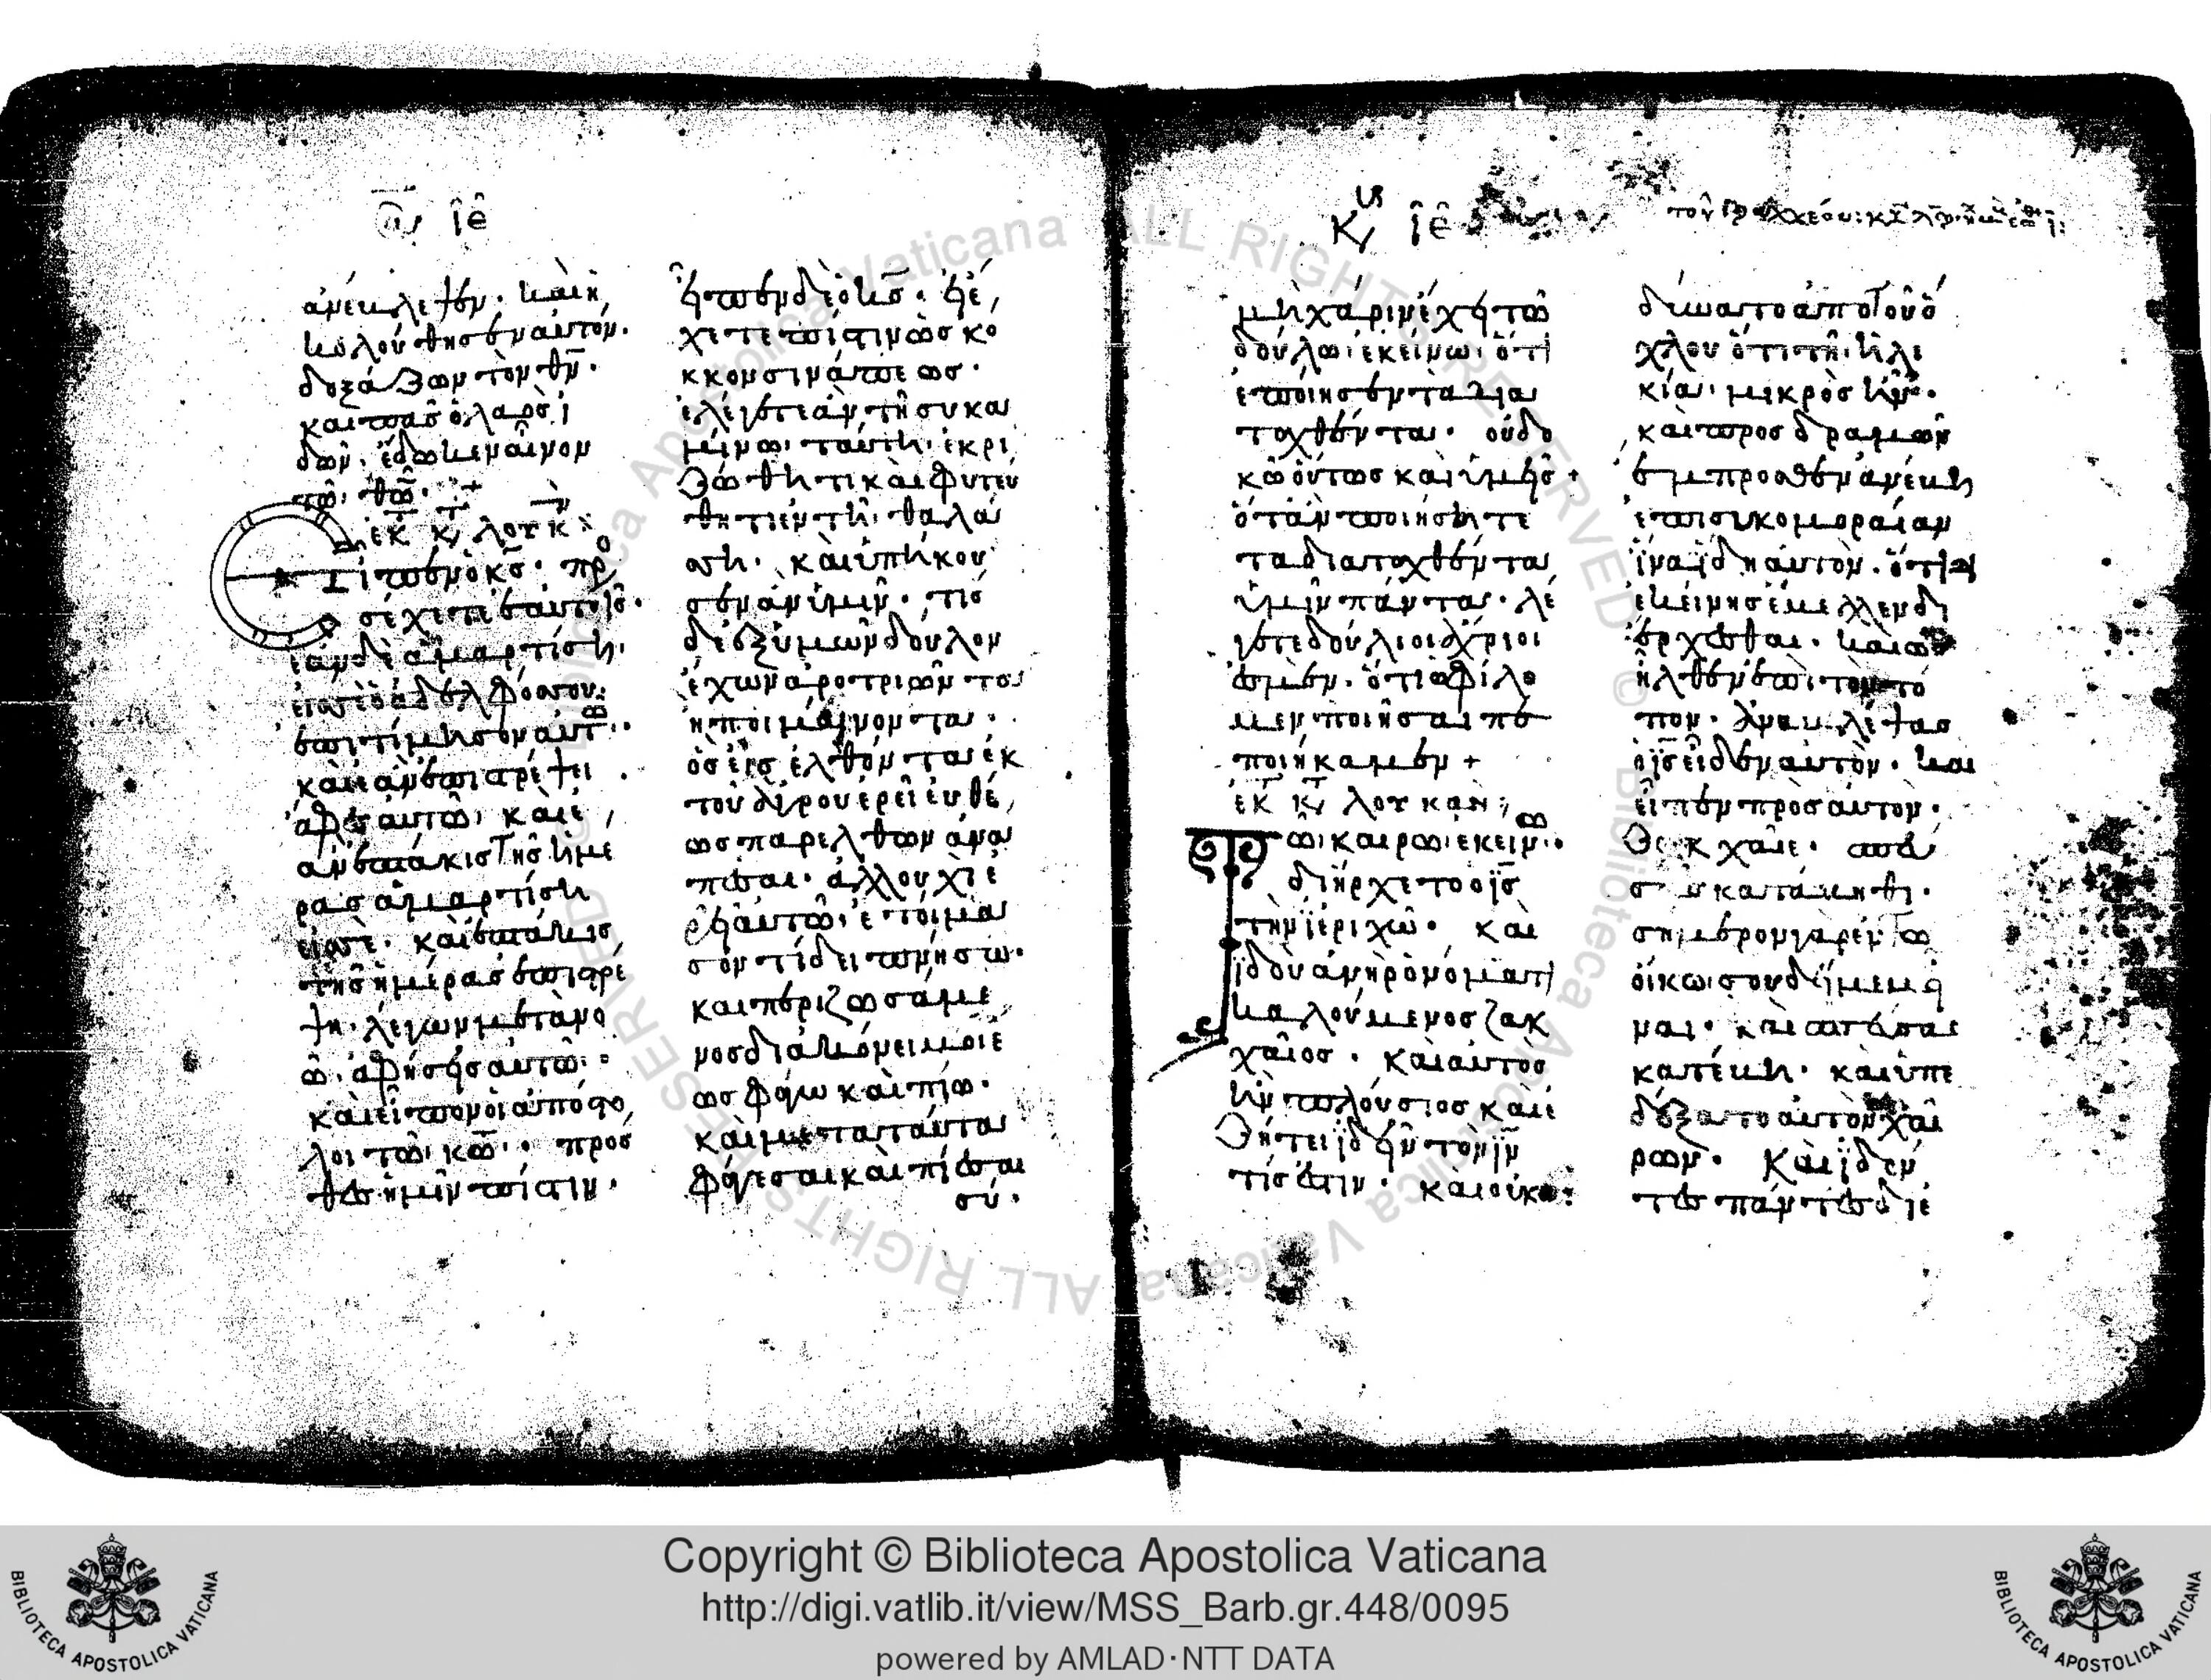 ἀνέβλεψεν. καὶ ἠ
κολούθησεν αὐτόν.
δοξάζων τὸν θν̄.
καὶ πᾶσ ὁ λαὸσ ἰ
δὼν. ἔδωκεν αἶνον
τῶ θω̄.
ἐκ κ, λουκ
Εἶπεν ὁ κσ̄. προ
σέχετε ἑαυτοῖσ.
ἐὰν δὲ ἁμαρτίση.
εἰσ σὲ ὁ ἀδελφόσ σου.
ἐπιτίμησον αὐτῶ.
καὶ ἐὰν ἐπιστρέψει.
ἄφεσ αὐτῶ. καὶ ἐ
ὰν ἑπτάκισ τῆσ ἡμέ
ρασ ἁμαρτίση
εἰσ σὲ. καὶ ἑπτάκισ
τῆσ ἡμέρασ ἐπιστρέ
ψη. λέγων μετανο
ῶ. ἀφήσεισ αὐτῶ.
καὶ εἶπον οἱ ἀπόστο
λοι τῶ κω̄. πρόσ
θεσ ἡμῖν πίστιν.
εἶπεν δὲ ὁ κσ̄. εἰ ἔ
χετε πίστιν ὡσ κό
κκον σινάπεωσ.
ἐλέγετε ἂν τῆ συκα
μίνω ταύτη. ἐκρι
ζώθητι καὶ φυτεύ
θητι ἐν τῆ θαλά
σση. καὶ ὑπήκου
σεν ἂν ὑμῖν. τίσ
δὲ ἐξ ὑμῶν δοῦλον
ἔχων ἀροτριῶντα
ἢ ποιμαίνοντα.
ὃσ εἰσελθόντα ἐκ
τοῦ ἀγροῦ ἐρεῖ εὐθέ
ωσ παρελθὼν ἀνά
πεσαι. ἀλλ' οὐχὶ ἐ
ρεῖ αὐτῶ. ἑτοίμα
σον τί δειπνήσω.
καὶ περιζωσάμε
νοσ διακόνει μοι ἕ
ωσ φάγω καὶ πίω.
καὶ μετὰ ταῦτα
φάγεσαι καὶ πίεσαι
σύ.
μὴ χάριν ἔχει τῶ
δούλω ἐκείνω. ὅτι
ἐποίησεν τὰ δια
ταχθέντα. οὐ δο
κῶ οὕτωσ καὶ ὑμεῖσ +
ὅταν ποιήσητε
τὰ διαταχθέντα
ὑμῖν πάντα. λέ
γετε δοῦλοι ἀχρεῖοι
ἐσμὲν. ὅτι ὠφείλο
μεν ποιῆσαι πε
ποιήκαμεν +
ἐκ κ, λουκᾶν
Τῶ καιρῶ ἐκείνω.
διήρχετο ὁ ισ̄
τὴν ἱεριχῶ. καὶ
ἰδοὺ ἀνὴρ ὀνόματι
καλούμενοσ ζακ
χαῖοσ. καὶ αὐτὸσ
ἦν πλούσιοσ καὶ ἐ
ζήτει ἰδεῖν τὸν ιν̄
τίσ ἐστιν. καὶ οὐκ ἐ
δύνατο ἀπὸ τοῦ ὄ
χλου ὅτι τῆ ἡλι
κία μικρὸσ ἦν.
καὶ προσδραμὼν
ἔμπροσθεν ἀνέβη
ἐπὶ συκομοραίαν
ἵνα ἴδη αὐτὸν. ὅτι δι
ἐκείνησ ἔμελλεν δι
έρχεσθαι. καὶ ὡσ
ἦλθεν ἐπὶ τὸν τό
πον. ἀναβλέψασ
ὁ ισ̄ εἶδεν αὐτὸν. καὶ
εἶπεν πρὸσ αὐτὸν.
Ζακχαῖε. σπεύ
σασ κατάβηθι.
σήμερον γὰρ ἐν τῶ
οἴκω σου δεῖ με μεῖ
ναι. καὶ σπεύσασ
κατέβη. καὶ ὑπε
δέξατο αὐτὸν χαί
ρων. καὶ ἰδόν
τεσ πάντεσ διε
Copyright © Biblioteca Apostolica Vaticana
http://digi.vatlib.it/view/MSS_Barb.gr.448/0095
powered by AMLAD·NTT DATA
BIBLIOTECA APOSTOLICA VATICANA
BIBLIOTECA APOSTOLICA VATICANA